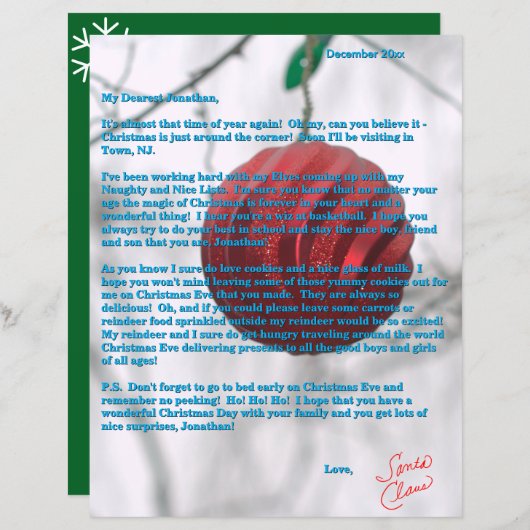 December 20xx
My Dearest Jonathan,
It's almost that time of year again!  Oh my, can you believe it -
Christmas is just around the corner!  Soon I'll be visiting in
Town, NJ.
I've been working hard with my Elves coming up with my
Naughty and Nice Lists.  I'm sure you know that no matter your
age the magic of Christmas is forever in your heart and a
wonderful thing!  I hear you're a wiz at basketball.  I hope you
always try to do your best in school and stay the nice boy, friend
and son that you are, Jonathan!
As you know I sure do love cookies and a nice glass of milk.  I
hope you won't mind leaving some of those yummy cookies out for
me on Christmas Eve that you made.  They are always so
delicious!  Oh, and if you could please leave some carrots or
reindeer food sprinkled outside my reindeer would be so excited!
My reindeer and I sure do get hungry traveling around the world
Christmas Eve delivering presents to all the good boys and girls
of all ages!
P.S.  Don't forget to go to bed early on Christmas Eve and
remember no peeking!  Ho! Ho! Ho!  I hope that you have a
wonderful Christmas Day with your family and you get lots of
nice surprises, Jonathan!
Love,
Santa
Claus